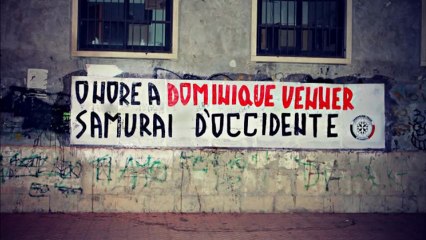 ONORE A DOMINIQUE VENNER
SAMURAI D'OCCIDENTE